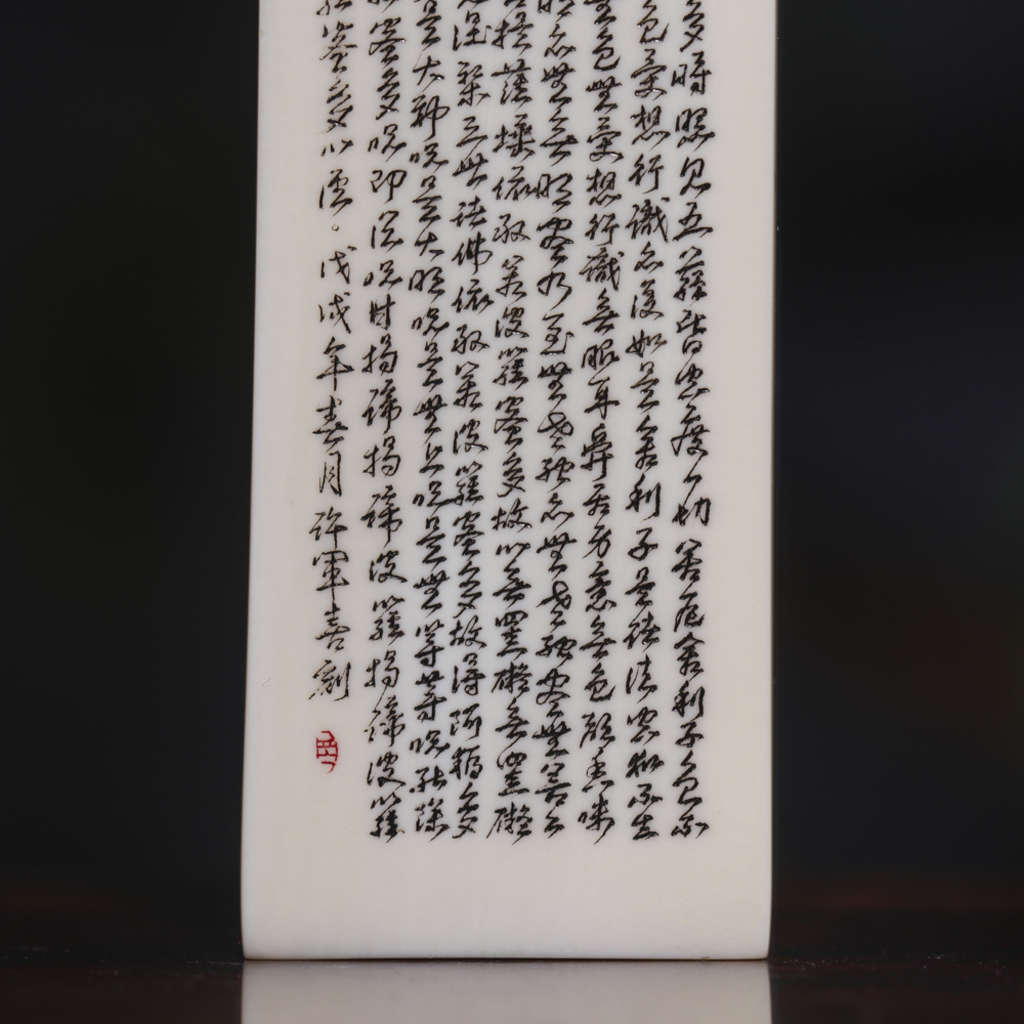 多時照見五蘊皆空度一切苦厄舍利子色不
色受想行識亦復如是舍利子是諸法空相不生
無色無受想行識無眼耳鼻舌身意無色聲香味
明亦無無明盡乃至無老死亦無老死盡無苦
菩提薩埵依般若波羅蜜多故心無罣礙無罣礙
涅槃三世諸佛依般若波羅蜜多故得阿耨多
是大神咒是大明咒是無上咒是無等等咒能除
蜜多咒即說咒曰揭諦揭諦波羅揭諦波羅
蜜多心經。戊戌年春月許軍喜刻